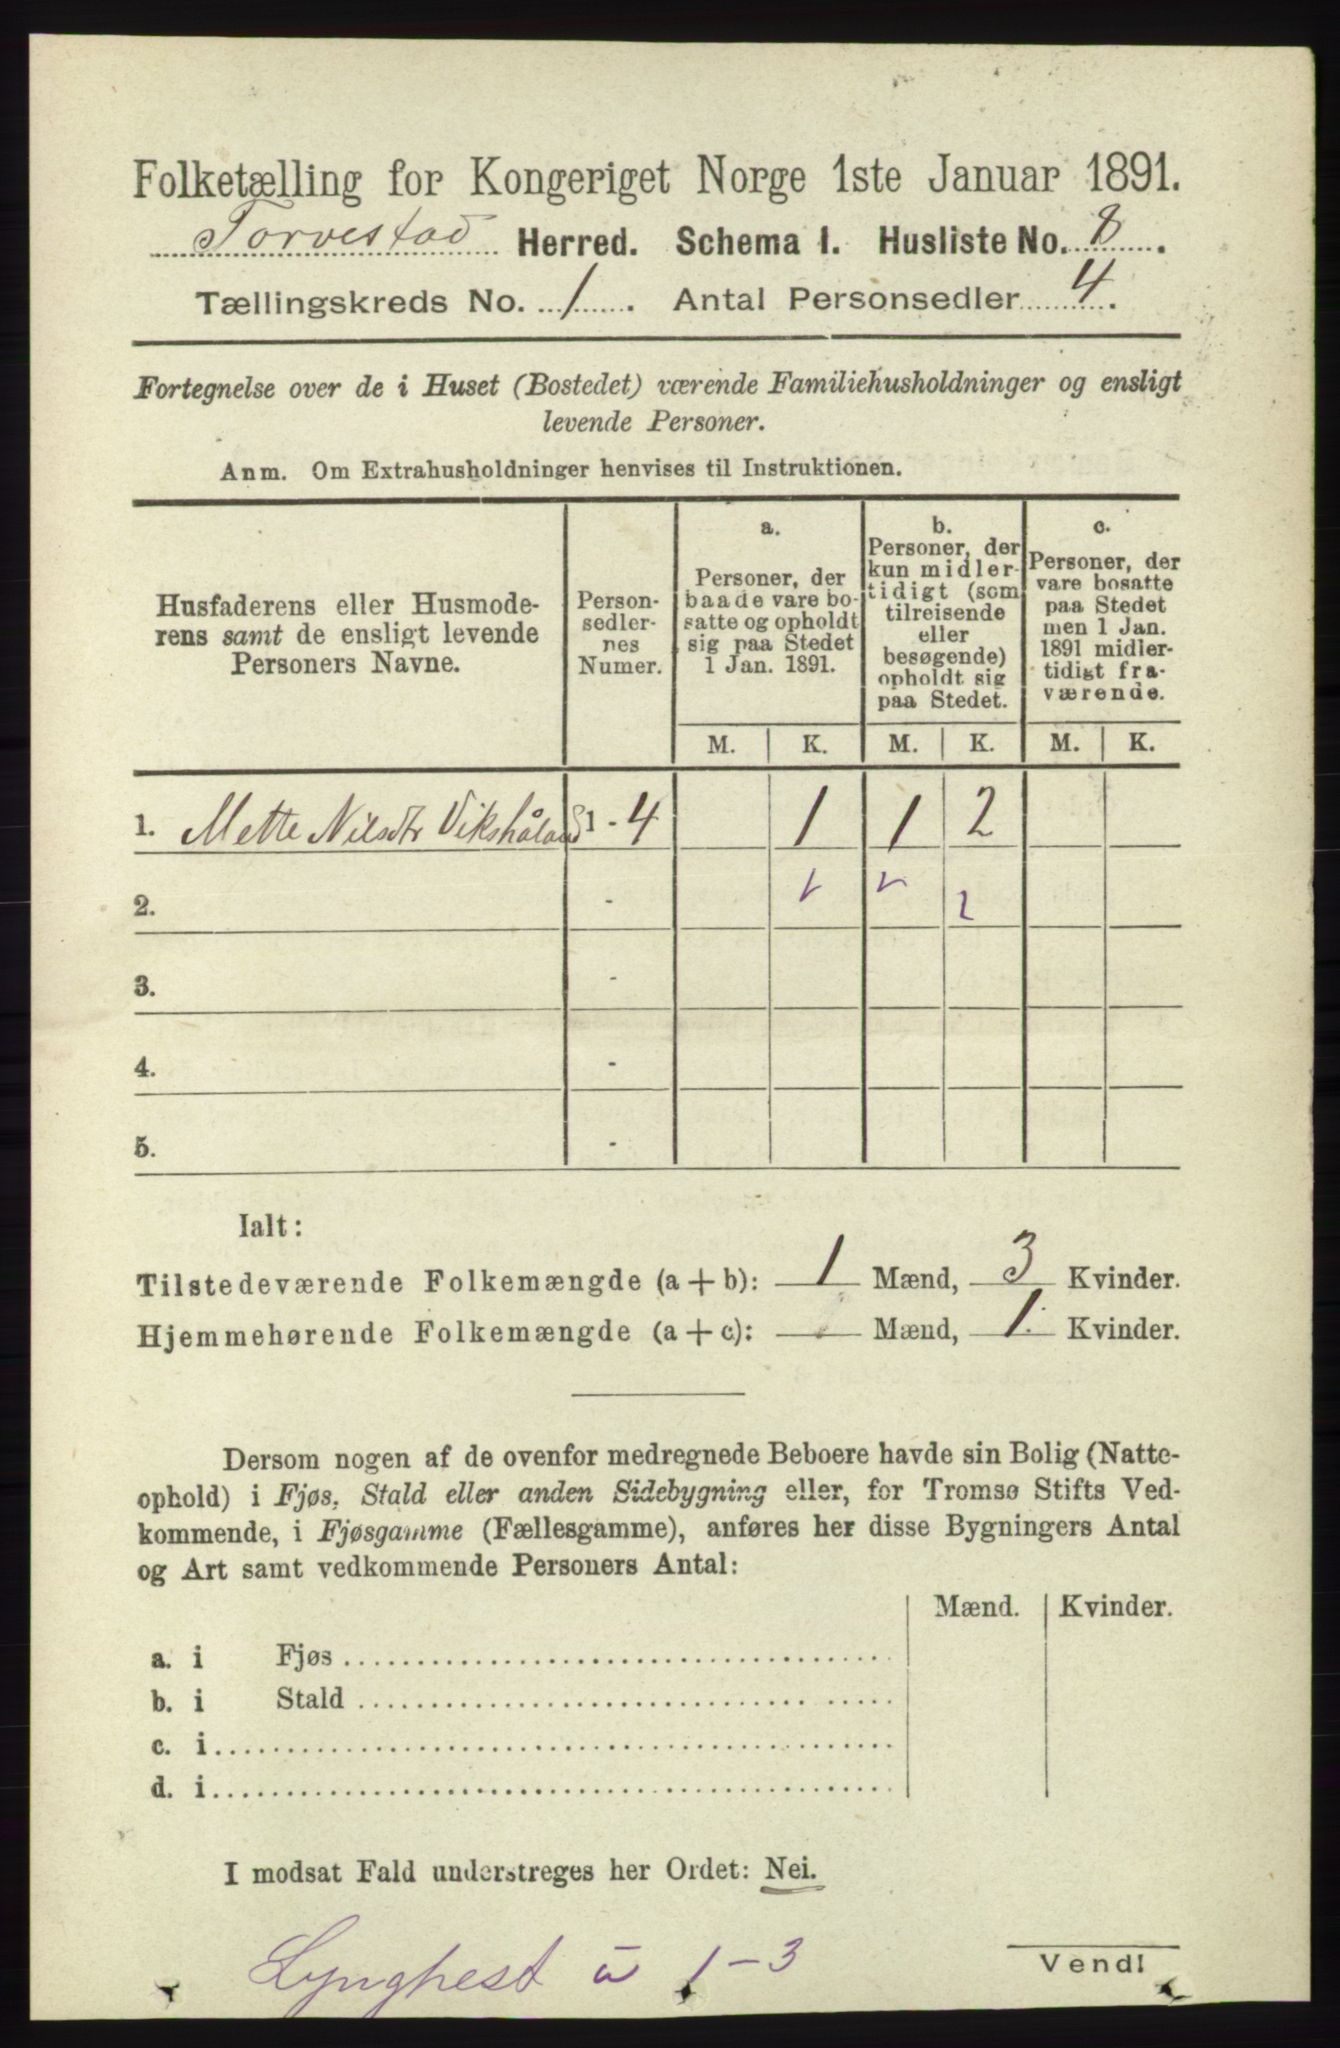 Folketælling for Kongeriget Norge 1ste Januar 1891.
Torvestad Herred. Schema 1. Husliste No. 8.
Tællingskreds No. 1. Antal Personsedler 4.
Fortegnelse over de i Huset (Bostedet) værende Familiehusholdninger og ensligt
levende Personer.
Anm. Om Extrahusholdninger henvises til Instruktionen.
Husfaderens eller Husmode-
rens samt de ensligt levende
Personers Navne.
Person-
sedler-
nes
Numer.
a.
Personer, der
baade vare bo-
satte og opholdt
sig paa Stedet
1 Jan. 1891.
b.
Personer, der
kun midler-
tidigt (som
tilreisende
eller
besøgende)
opholdt sig
paa Stedet.
c.
Personer, der
vare bosatte
paa Stedet
men 1 Jan.
1891 midler-
tidigt fra-
værende.
M. K. M. K. M. K.
1. Mette Nilsdtr Vikshåland 1 - 4 1 1 2
2. -
2
3. -
4. -
5. -
Ialt:
Tilstedeværende Folkemængde (a + b): 1 Mænd, 3 Kvinder.
Hjemmehørende Folkemængde (a + c): Mænd, 1 Kvinder.
Dersom nogen af de ovenfor medregnede Beboere havde sin Bolig (Natte-
ophold) i Fjøs, Stald eller anden Sidebygning eller, for Tromsø Stifts Ved-
kommende, i Fjøsgamme (Fællesgamme), anføres her disse Bygningers Antal
og Art samt vedkommende Personers Antal:
Mænd. Kvinder.
a. i Fjøs
b. i Stald
c. i
d. i
I modsat Fald understreges her Ordet: Nei.
Vend!
1-3